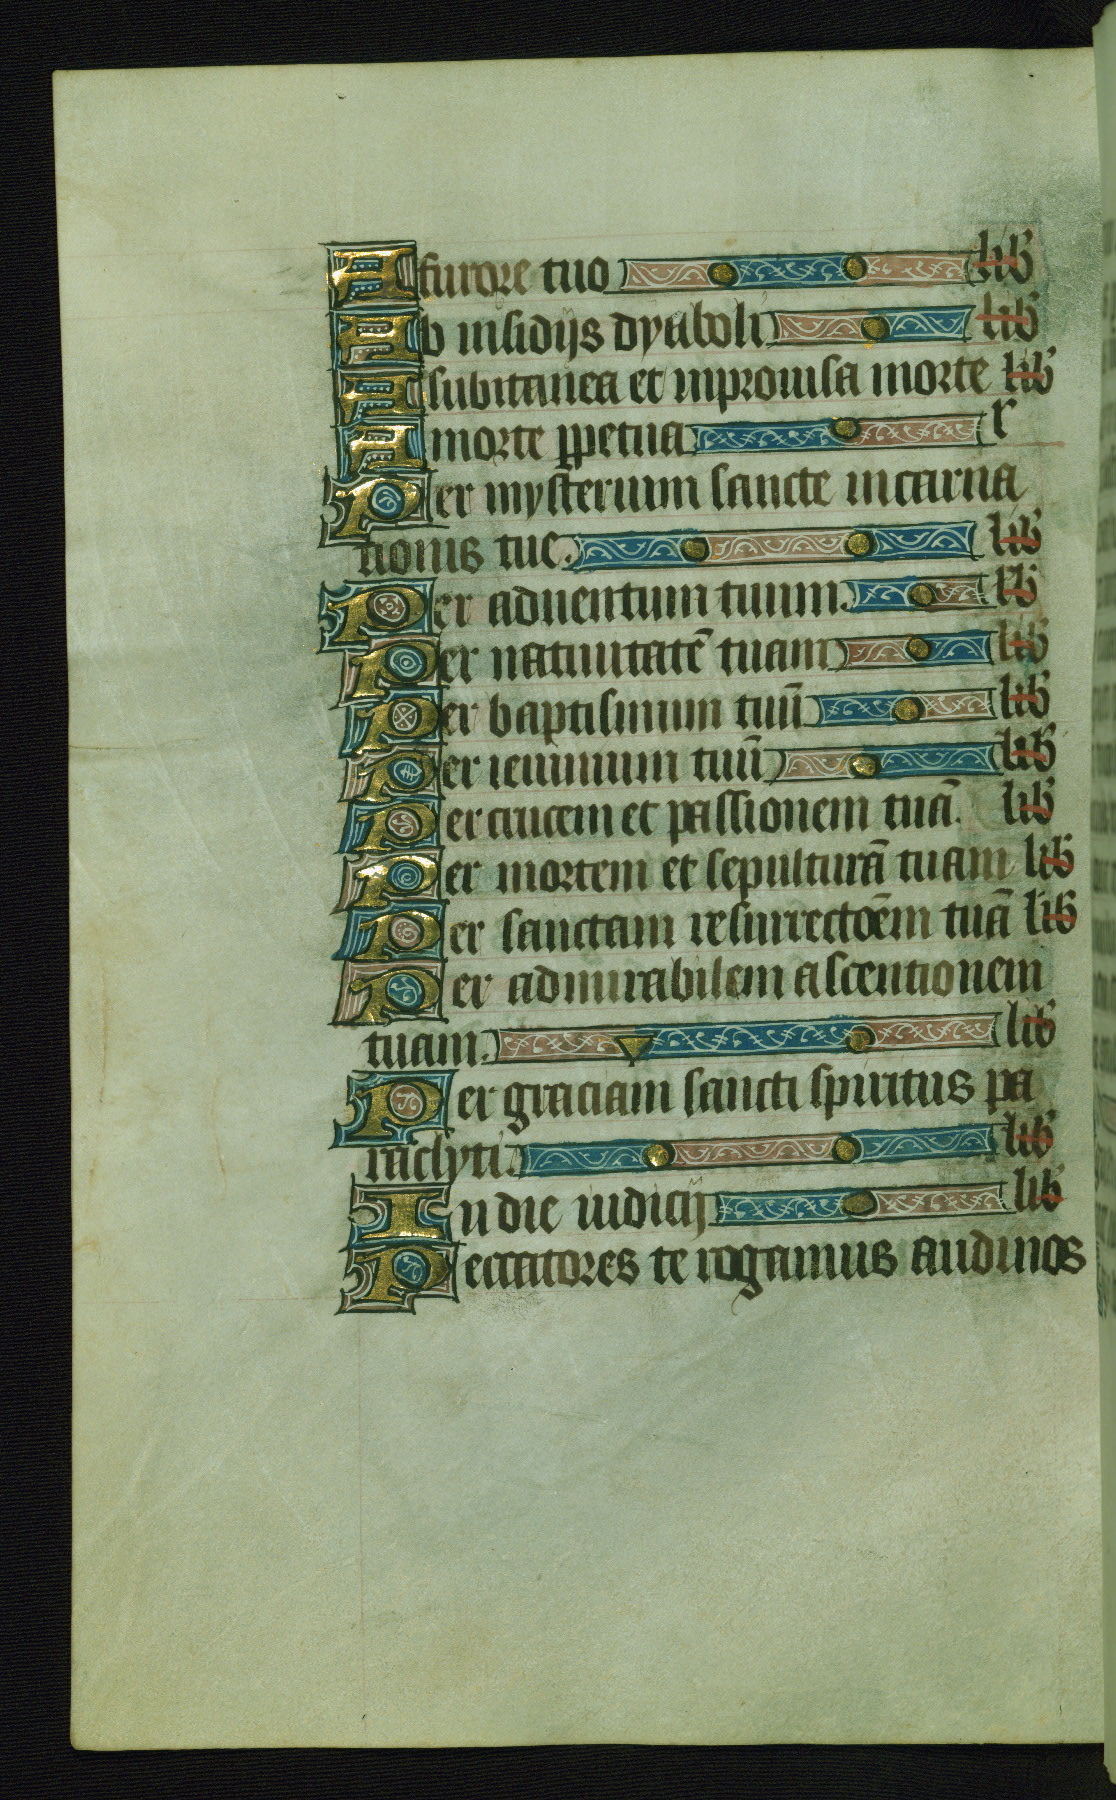 A furore tuo lib
Ab insidijs dyaboli lib
A subitanea et inprouisa morte lib
A morte ꝑpetua l
Per mysterium sancte incarna
tionis tue. lib
Per aduentum tuum. lib
Per natiuitatē tuam lib
Per baptismum tuū lib
Per ieiunium tuū lib
Per crucem et passionem tuā. lib
Per mortem et sepulturā tuam lib
Per sanctam resurrectoēm tuā lib
Per admirabilem ascentionem
tuam. lib
Per graciam sancti spiritus pa
raclyti. lib
In die iudicij lib
Peccatores te rogamus audi nos